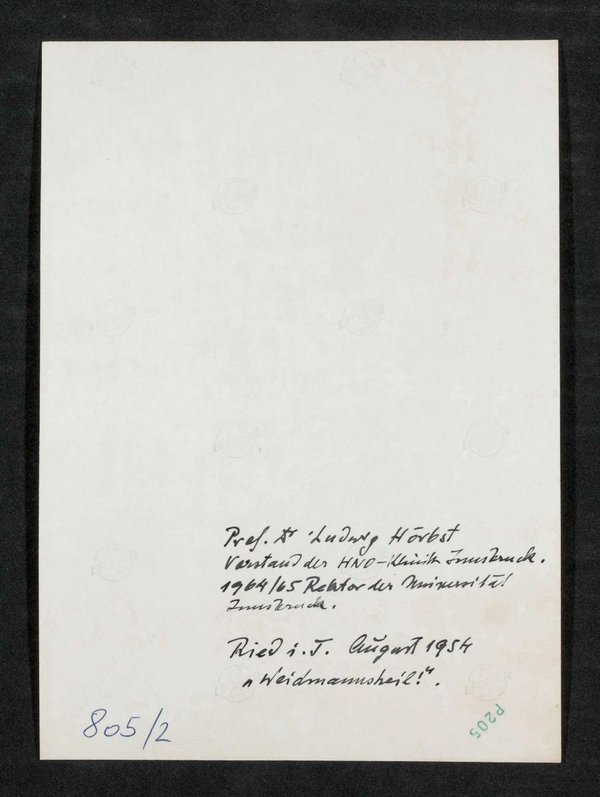 Prof. Dr Ludwig Hörbst
Vorstand der HNO-Klinik Innsbruck.
1964/65 Rektor der Universität
Innsbruck.
Ried i. T. August 1954
„Weidmannsheil!“.
805/2
P205